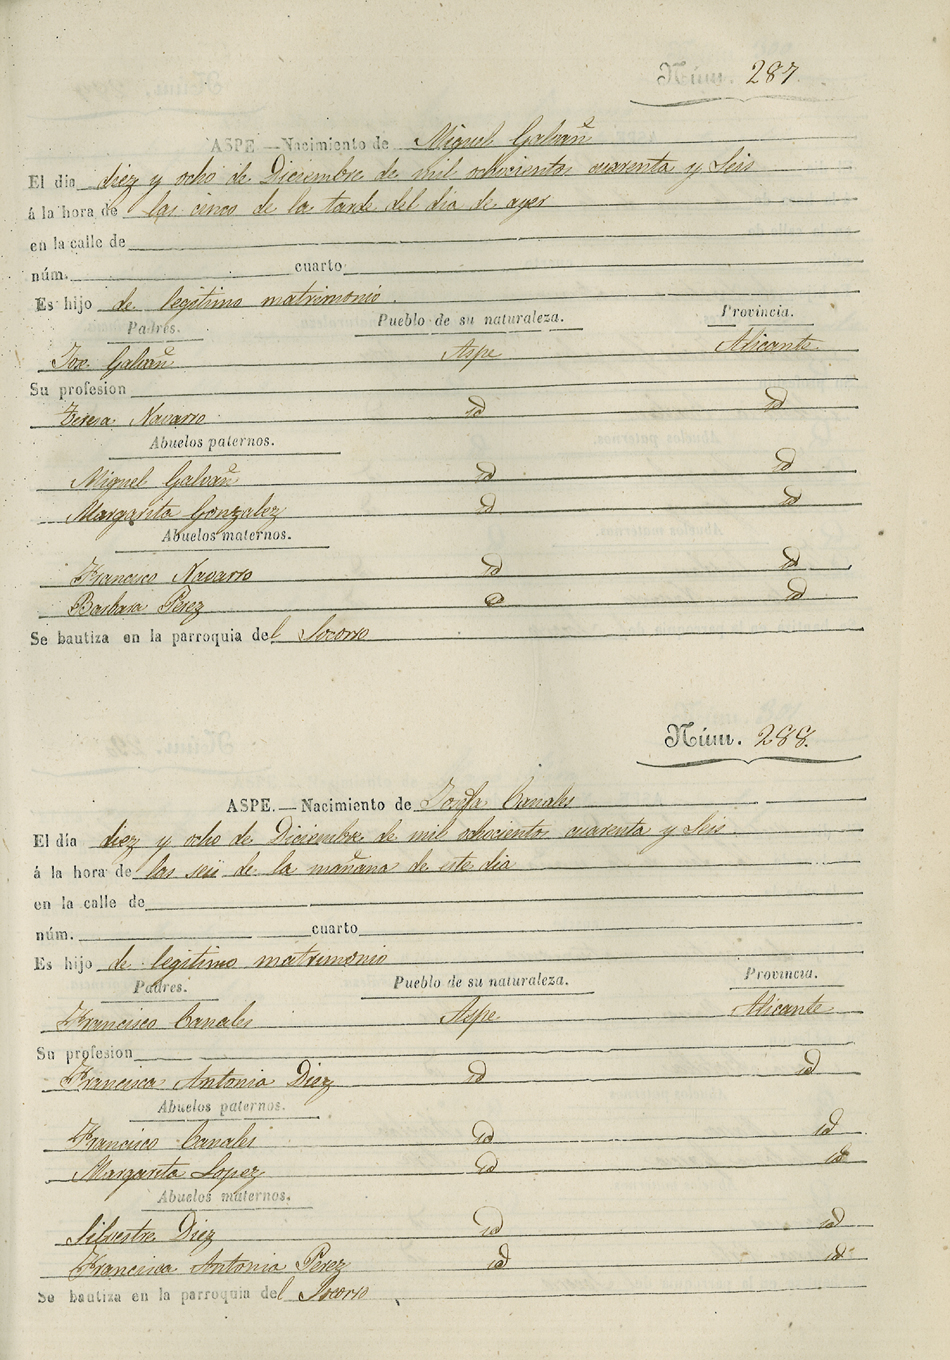 Núm. 287
ASPE.—Nacimiento de Miguel Galvañ
El día diez y ocho de Diciembre de mil ochocientos cuarenta y Seis
á la hora de las cinco de la tarde del dia de ayer
en la calle de
núm. cuarto
Es hijo de legitimo matrimonio.
Padres. Pueblo de su naturaleza. Provincia.
Jose Galvañ Aspe Alicante
Su profesion
Teresa Navarro id id
Abuelos paternos.
Miguel Galvañ id id
Margarita Gonzalez id id
Abuelos maternos.
Francisco Navarro id id
Barbara Perez id id
Se bautiza en la parroquia del Socorro
Núm. 288.
ASPE.—Nacimiento de Josefa Canales
El día diez y ocho de Diciembre de mil ochocientos cuarenta y Seis
á la hora de las seis de la mañana de este dia
en la calle de
núm. cuarto
Es hijo de legitimo matrimonio
Padres. Pueblo de su naturaleza. Provincia.
Francisco Canales Aspe Alicante
Su profesion
Francisca Antonia Diez id id
Abuelos paternos.
Francisco Canales id id
Margarita Lopez id id
Abuelos maternos.
Silvestre Diez id id
Francisca Antonia Perez id id
Se bautiza en la parroquia del Socorro